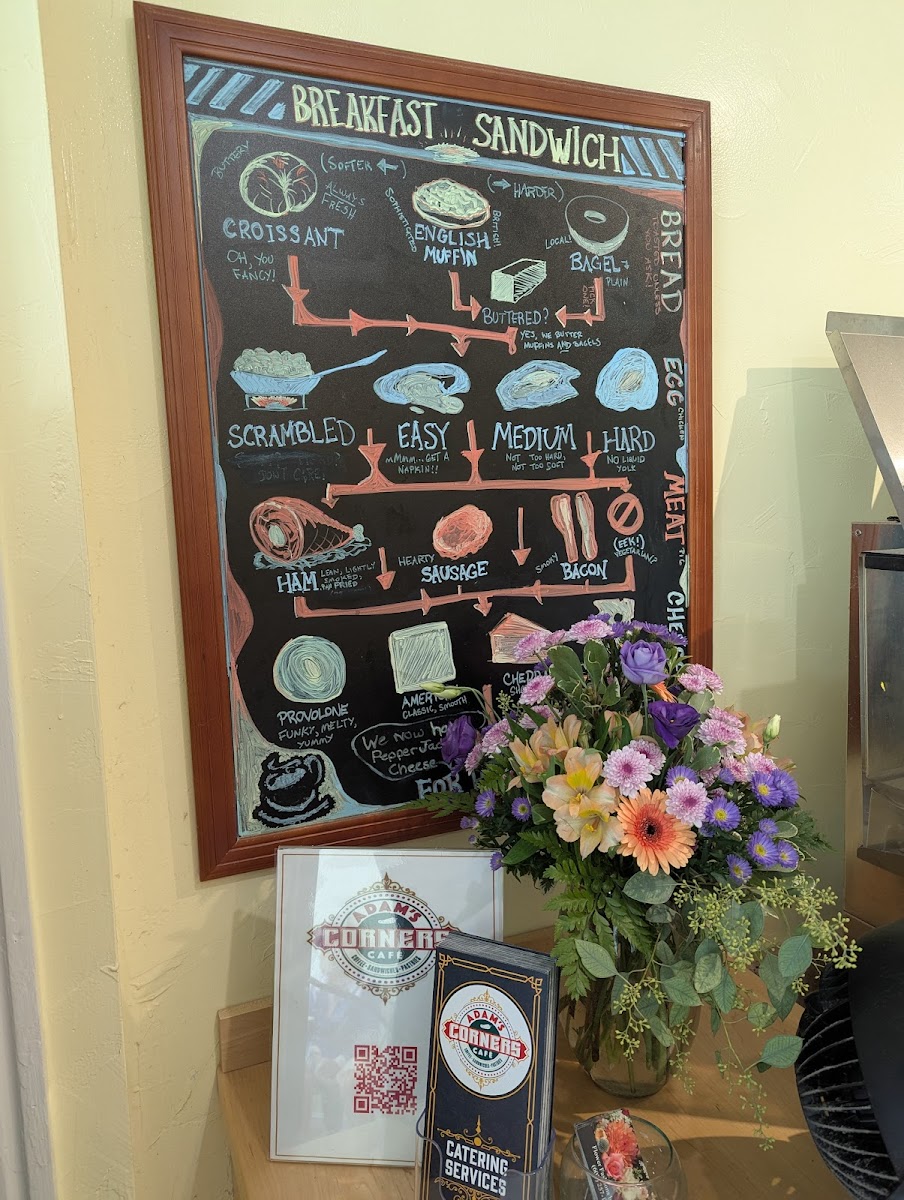 BREAKFAST SANDWICH
BUTTERY
(SOFTER
ALWAYS
FRESH
CROISSANT
OH, YOU
FANCY!
SOPHISTICATED
ENGLISH
MUFFIN
BRITISH!
HARDER)
LOCAL!
BAGEL
PLAIN
PICK
ONE!
BREAD
TOASTED UNLESS
YOU ASK!
BUTTERED?
YES, WE BUTTER
MUFFINS AND BAGELS
EGG
CHICKEN
SCRAMBLED
DON'T CARE!
EASY
MMMM... GET A
NAPKIN!!
MEDIUM
NOT TOO HARD,
NOT TOO SOFT
HARD
NO LIQUID
YOLK
MEAT
HAM
LEAN, LIGHTLY
SMOKED,
PAN FRIED
HEARTY
SAUSAGE
SMOKY
BACON
(EEK!)
VEGETARIAN?
PROVOLONE
FUNKY, MELTY,
YUMMY
CLASSIC, SMOOTH
We now
Cheese
FOR
ADAM'S
CORNERS
CAFE
COFFEE·SANDWICHES·PASTRIES
ADAM'S
CORNERS
CAFE
COFFEE·SANDWICHES·PASTRIES
CATERING
SERVICES